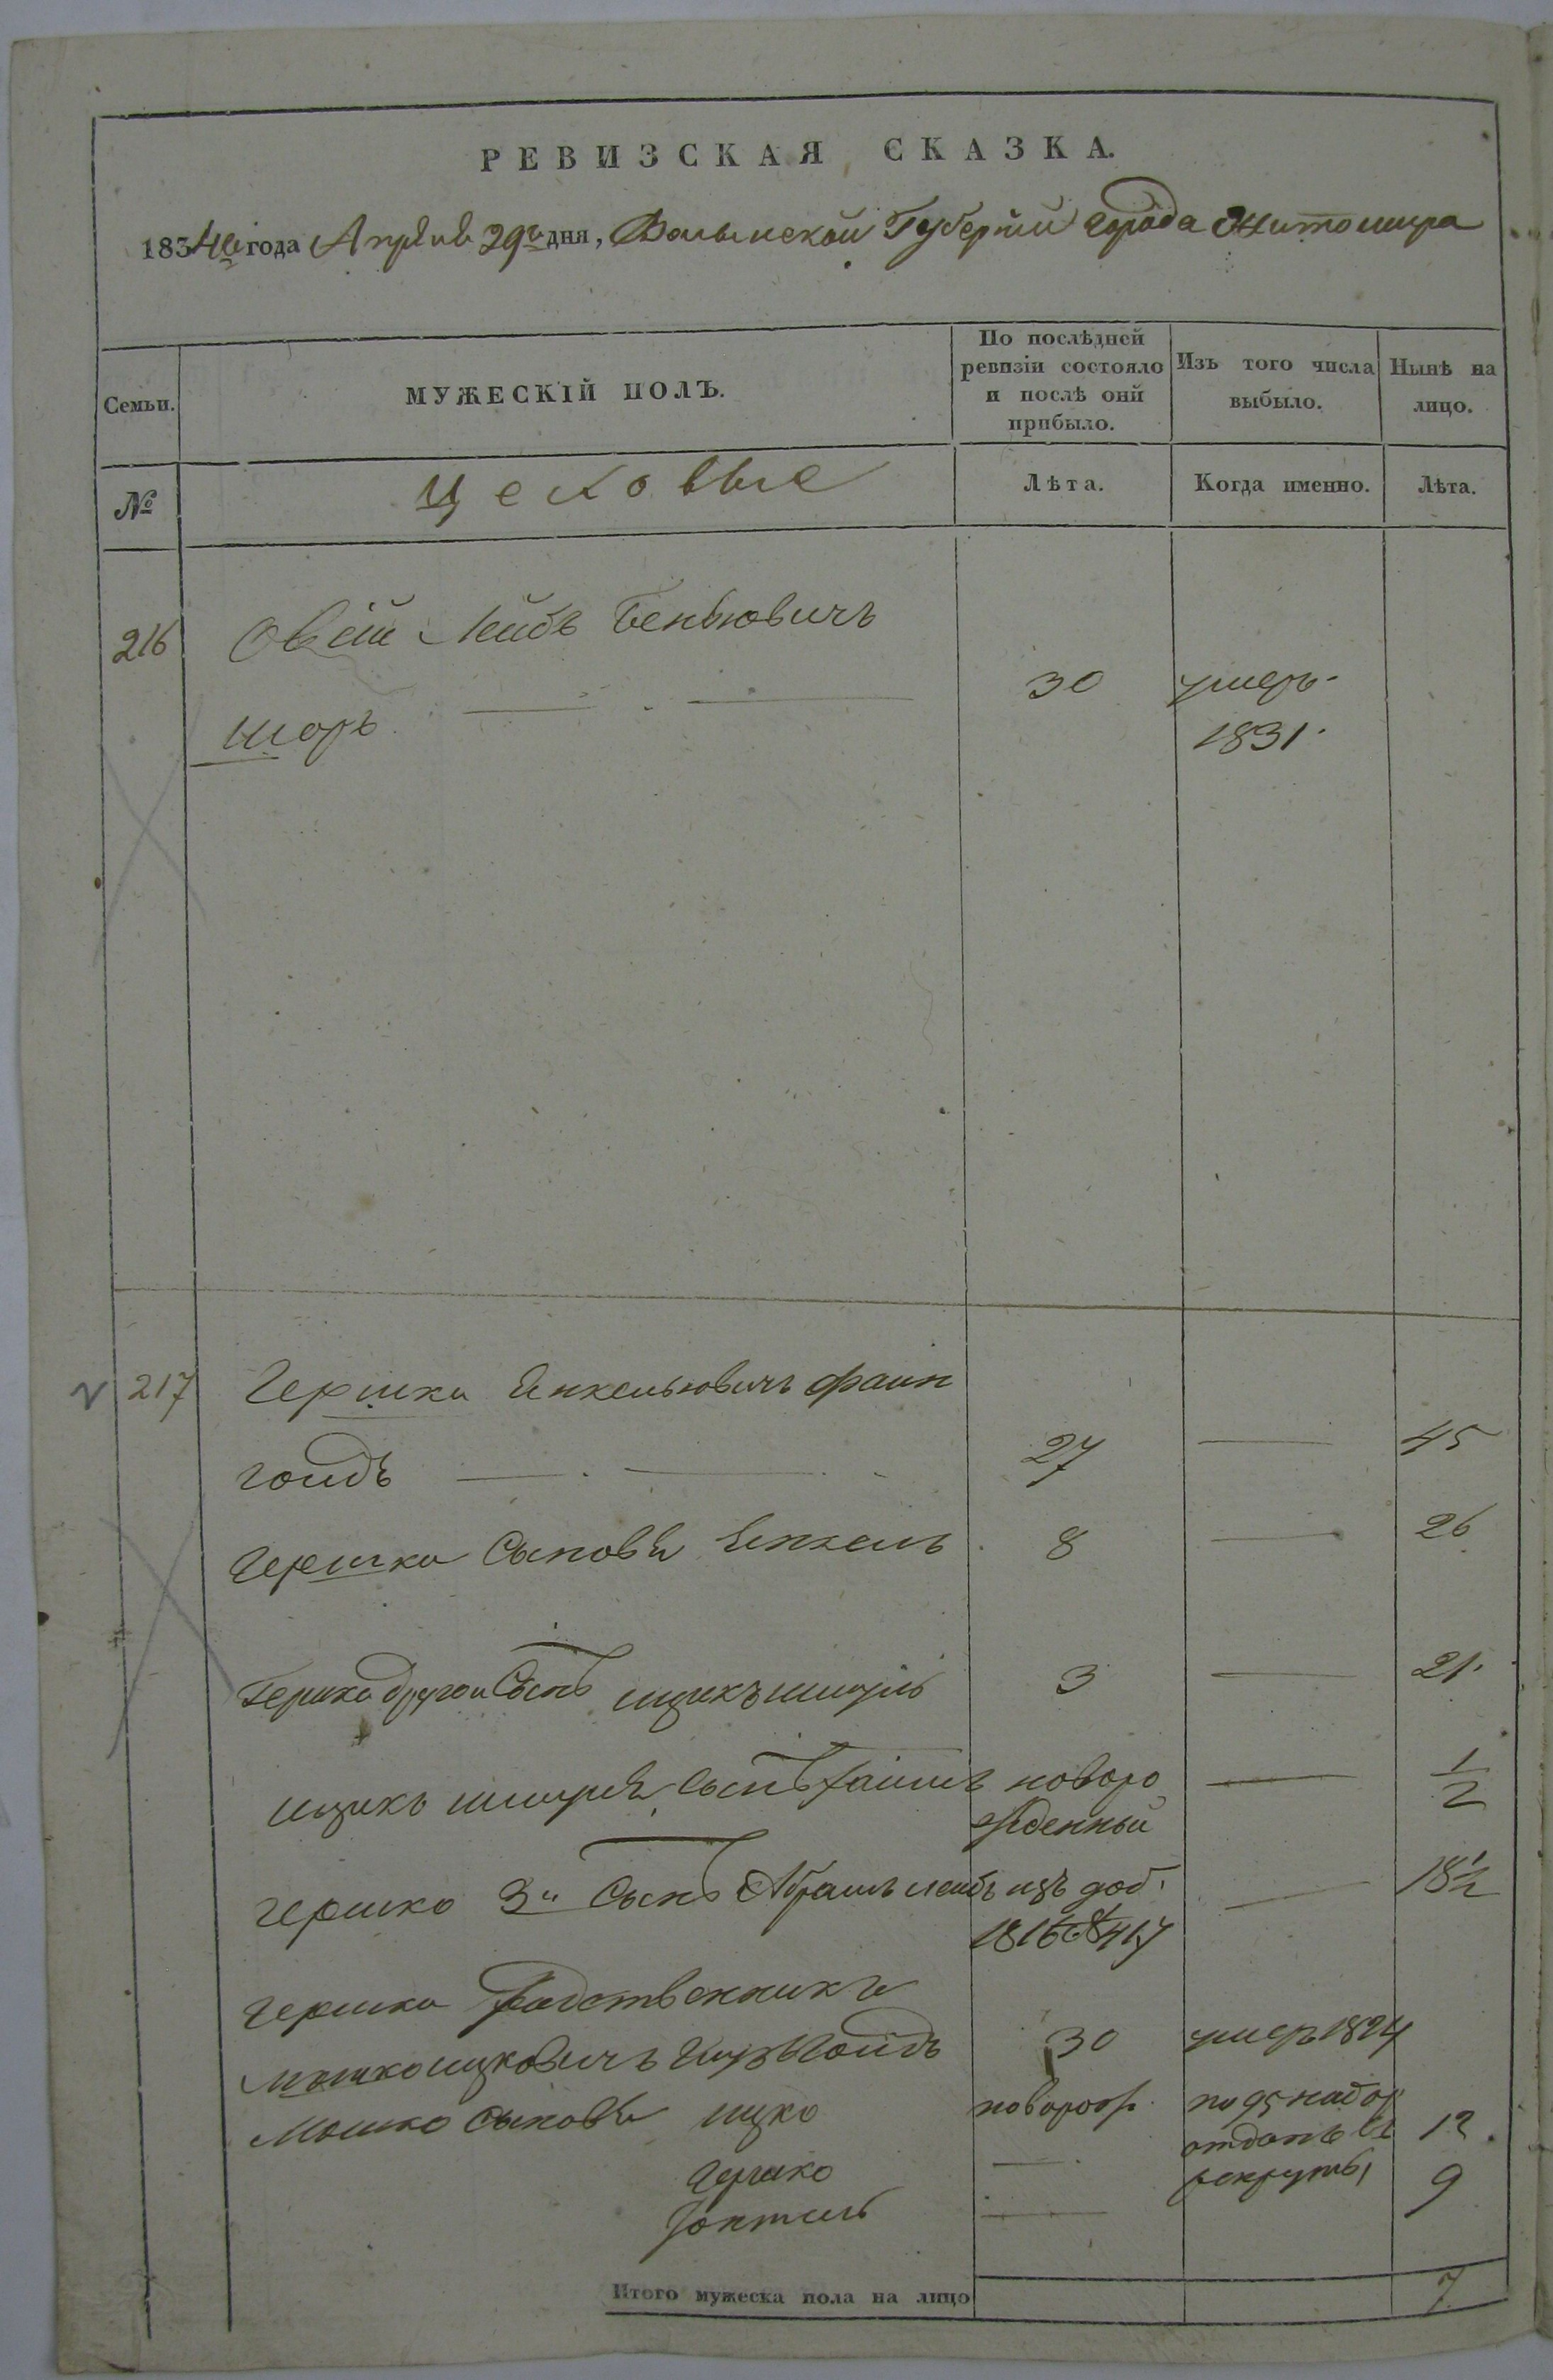 РЕВИЗСКАЯ СКАЗКА.
1834го года Апреля 29го дня, Волынской Губернии города Житомира
Семьи.
МУЖЕСКІЙ ПОЛЪ.
По послѣдней ревизіи состояло и послѣ оній прибыло.
Изъ того числа выбыло.
Нынѣ на лицо.
№
Цеховые
Лѣта.
Когда именно.
Лѣта.
216 Овсій Лейбъ Беньювичъ
шоръ 30 умеръ
1831.
217 Гершка Янкельовичъ фаин
гойдъ 27 45
Гершка Сыновья Янкель 8 26
Гершка другой Сынъ ицикъ шмуль 3 21
ицикъ шмуля сынъ хаимъ новоро 1/2
жденный
гершко 3й Сынъ Абрамъ лейбъ изъ доб. 18 1/2
1816
гершка Родственникъ
мошко ицковичъ гойдъ 30 умеръ 1824
мошко сыновья ицко новорож. по 95 набор
отданъ въ 12
рекруты
гершко 9
Итого мужеска пола на лицо 7